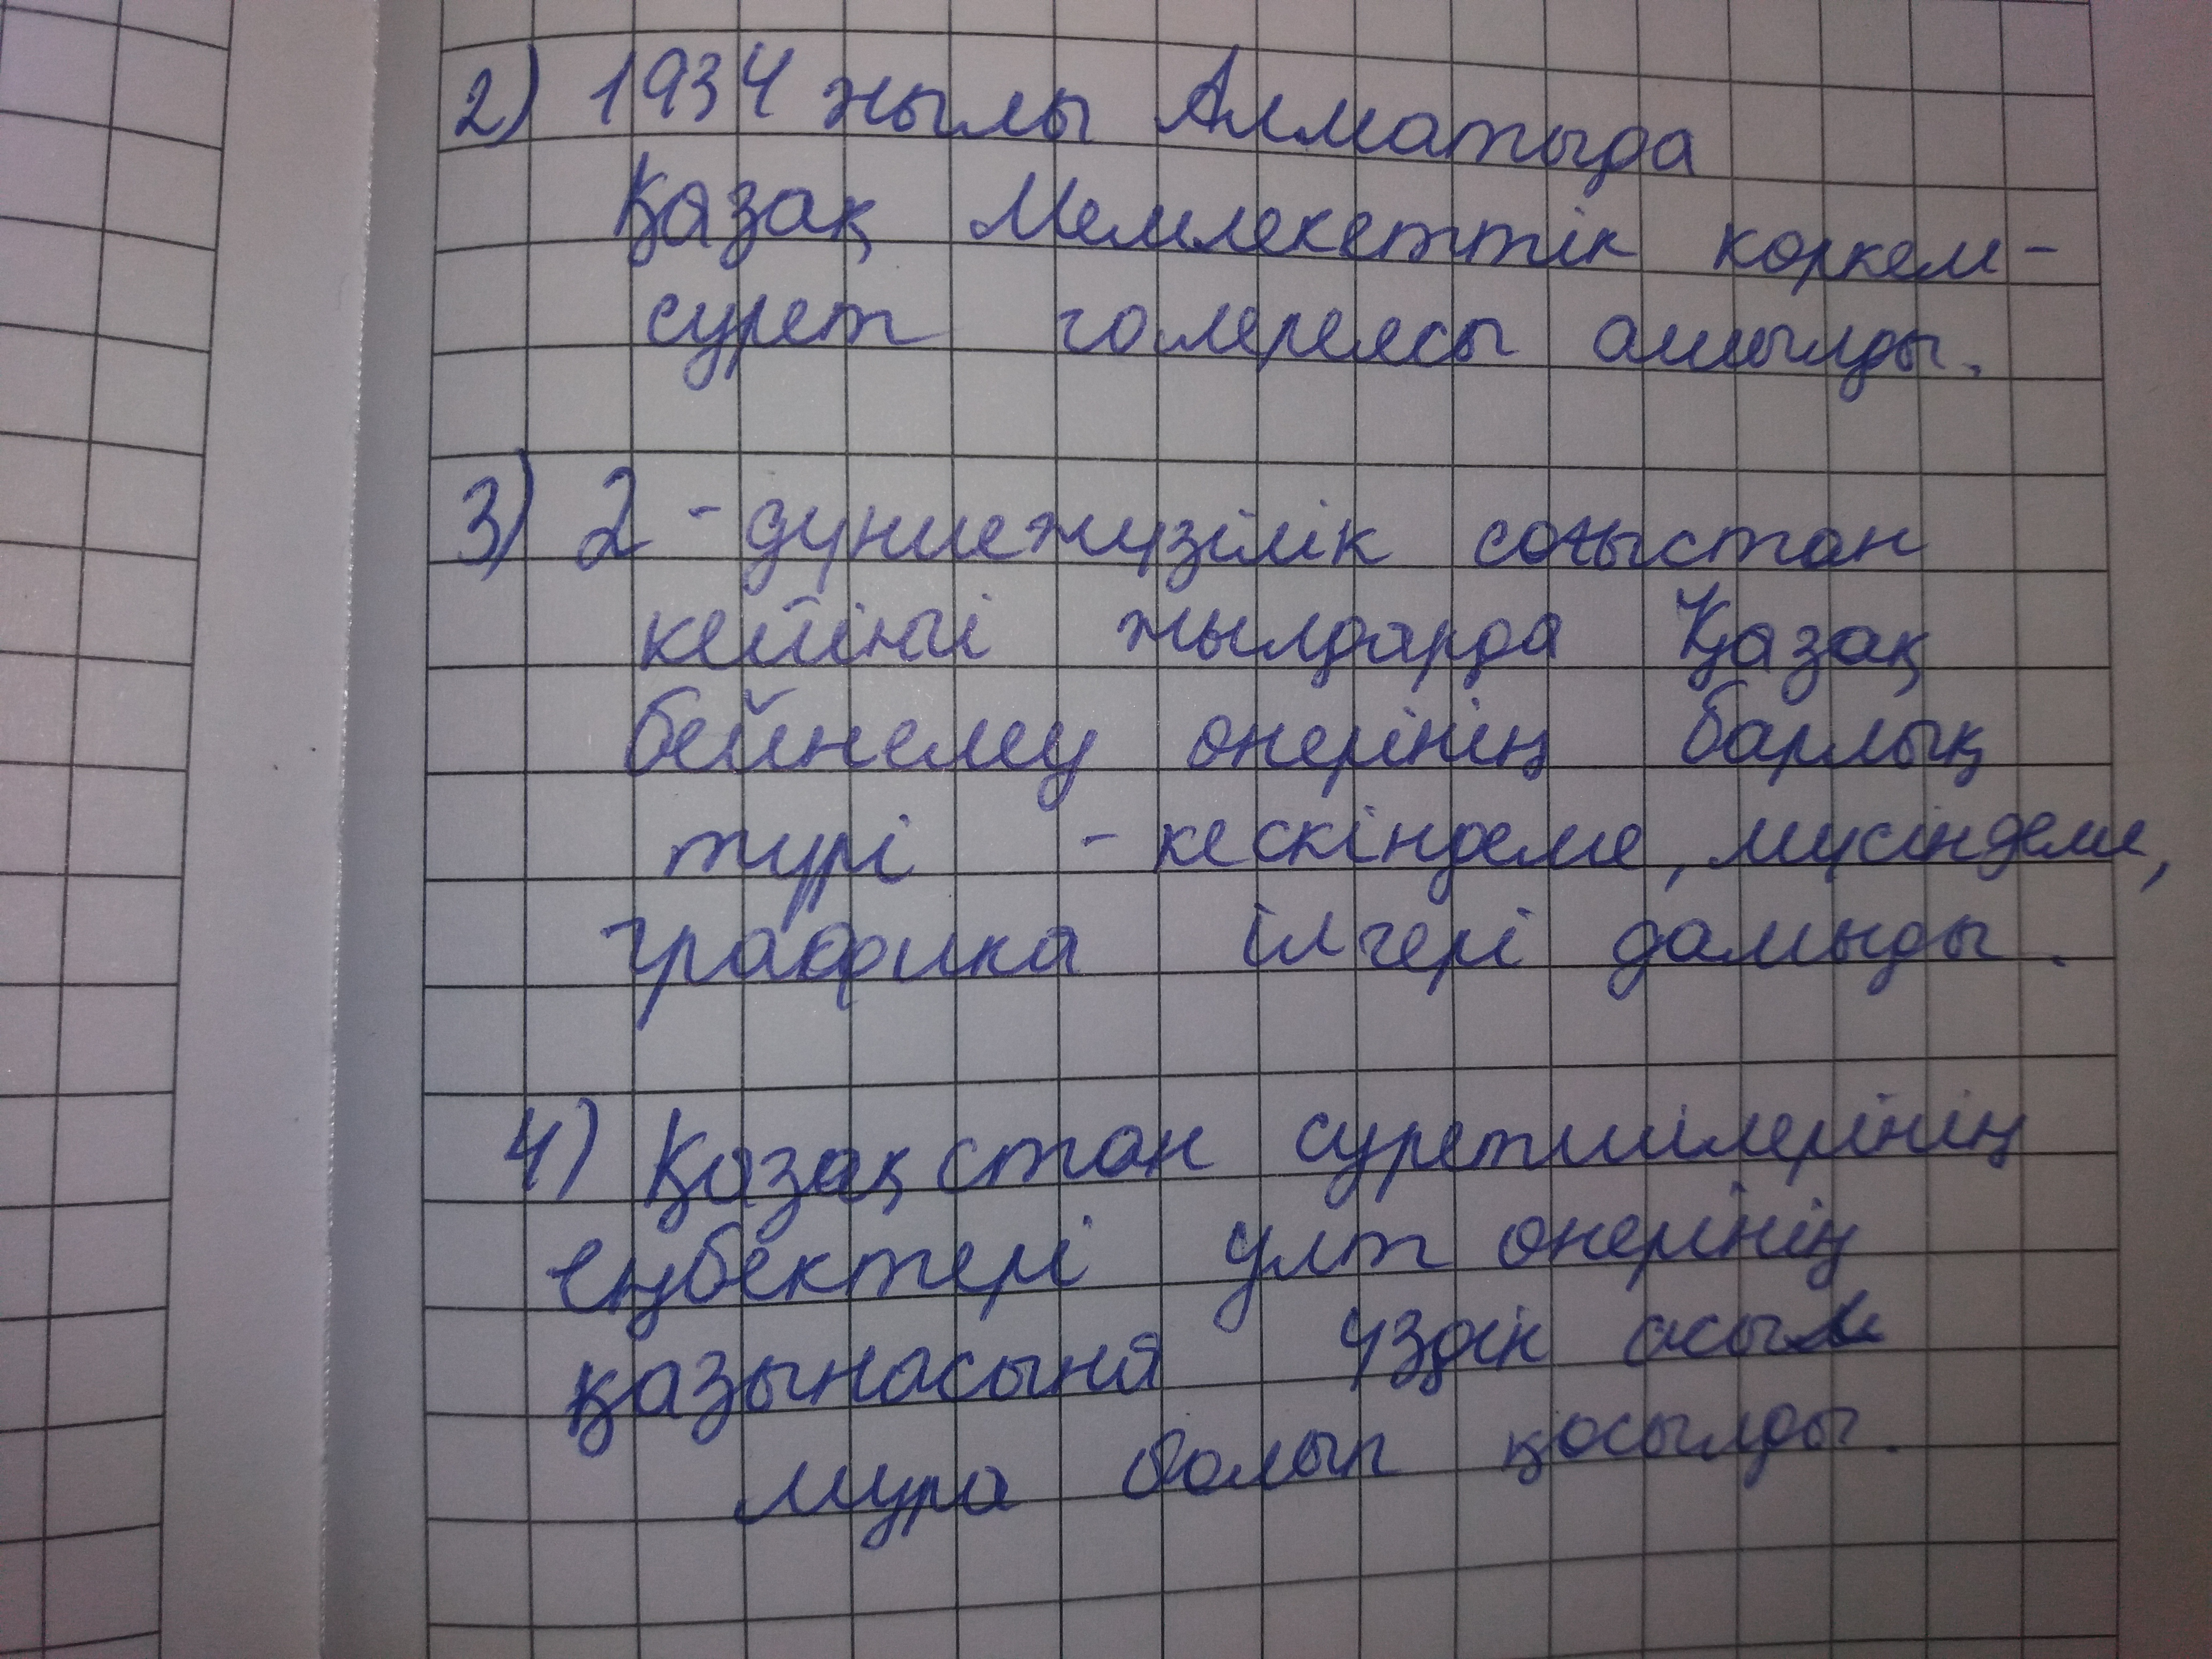 2) 1934 жылы Алматыда
Қазақ Мемлекеттік көркем-
сурет галереясы ашылды.
3) 2-дүниежүзілік соғыстан
кейінгі жылдарда Қазақ
бейнелеу өнерінің барлық
түрі - кескіндеме, мүсіндеме,
графика ілгері дамыды.
4) Қазақстан суретшілерінің
еңбектері ұлт өнерінің
қазынасына үздік асыл
мұра болып қосылды.